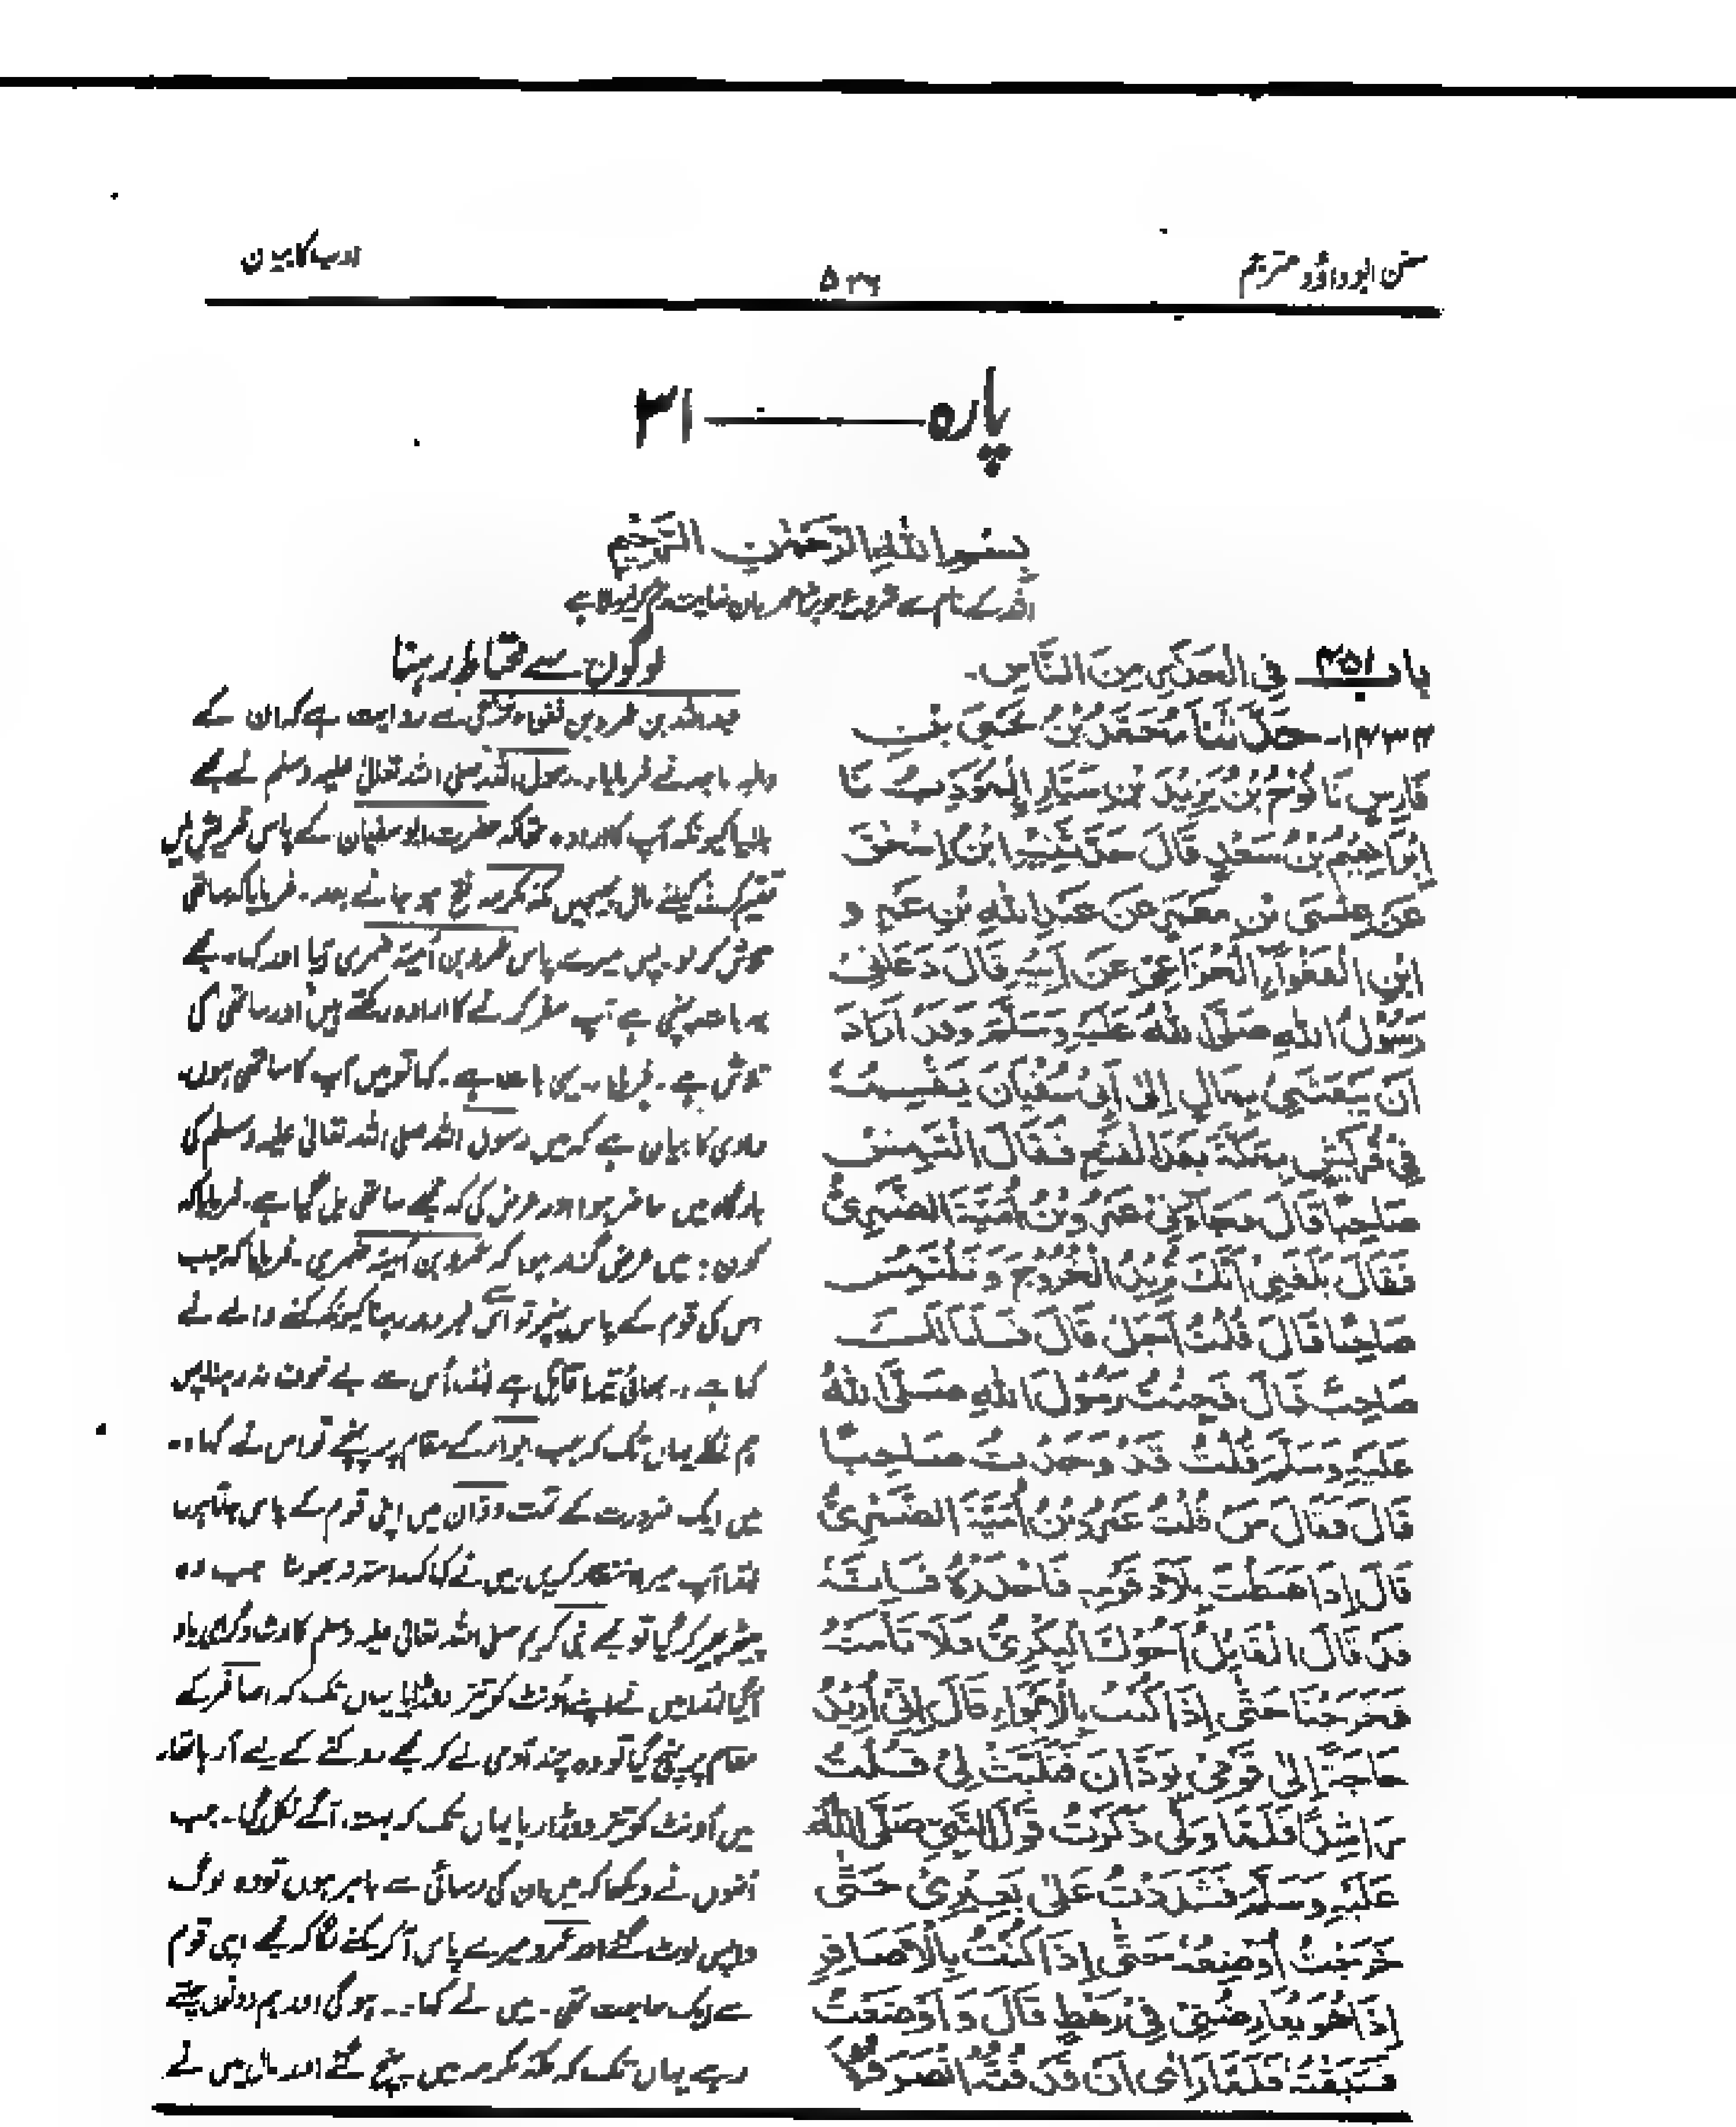 سنن ابو داؤد مترجم
۵۳۶
ادب کا بیان
پارہ ——— ۳۱
بسم الله الرحمن الرحيم
اللہ کے نام سے شروع جو بڑا مہربان نہایت رحم کرنیوالا ہے
باب ۴۵۱ فِي الْحَذَرِ مِنَ النَّاسِ۔
۱۴۳۳۔ حَدَّثَنَا مُحَمَّدُ بْنُ يَحْيَى بْنِ
فَارِسٍ نَا نُوحُ بْنُ يَزِيدَ بْنِ سَيَّارٍ الْمُؤَدِّبُ نَا
إِبْرَاهِيمُ بْنُ سَعْدٍ قَالَ حَدَّثَنِيهِ ابْنُ إِسْحٰقَ
عَنْ عِيسَى بْنِ مَعْمَرٍ عَنْ عَبْدِ اللهِ بْنِ عَمْرِو
ابْنِ الْفَغْوَاءِ الْخُزَاعِيِّ عَنْ أَبِيهِ قَالَ دَعَانِي
رَسُولُ اللهِ صَلَّى اللهُ عَلَيْهِ وَسَلَّمَ وَقَدْ أَرَادَ
أَنْ يَبْعَثَنِي بِمَالٍ إِلَى أَبِي سُفْيَانَ يَقْسِمُهُ
فِي قُرَيْشٍ بِمَكَّةَ بَعْدَ الْفَتْحِ فَقَالَ الْتَمِسْ
صَاحِبًا قَالَ فَجَاءَنِي عَمْرُو بْنُ أُمَيَّةَ الضَّمْرِيُّ
فَقَالَ بَلَغَنِي أَنَّكَ تُرِيدُ الْخُرُوجَ وَتَلْتَمِسُ
صَاحِبًا قَالَ قُلْتُ أَجَلْ قَالَ فَأَنَا لَكَ
صَاحِبٌ قَالَ فَجِئْتُ رَسُولَ اللهِ صَلَّى اللهُ
عَلَيْهِ وَسَلَّمَ قُلْتُ قَدْ وَجَدْتُ صَاحِبًا
قَالَ فَقَالَ مَنْ قُلْتُ عَمْرُو بْنُ أُمَيَّةَ الضَّمْرِيُّ
قَالَ إِذَا هَبَطْتَ بِلَادَ قَوْمِهِ فَاحْذَرْهُ فَإِنَّهُ
قَدْ قَالَ الْقَائِلُ أَخُوكَ الْبِكْرِيُّ فَلَا تَأْمَنْهُ
فَخَرَجْنَا حَتّٰى إِذَا كُنْتُ بِالْأَبْوَاءِ قَالَ إِنِّي أُرِيدُ
حَاجَةً إِلٰى قَوْمِي بِوَدَّانَ فَتَلَبَّثْ لِي قُلْتُ
رَاشِدًا فَلَمَّا وَلّٰى ذَكَرْتُ قَوْلَ النَّبِيِّ صَلَّى اللهُ
عَلَيْهِ وَسَلَّمَ فَشَدَدْتُ عَلٰى بَعِيرِي حَتّٰى
خَرَجْتُ أُوضِعُهُ حَتّٰى إِذَا كُنْتُ بِالْأَصَافِرِ
إِذَا هُوَ يُعَارِضُنِي فِي رَهْطٍ قَالَ وَأَوْضَعْتُ
فَسَبَقْتُهُ فَلَمَّا رَاٰى أَنْ قَدْ فُتُّهُ انْصَرَفُوا
لوگوں سے محتاط رہنا
عبداللہ بن عمرو بن فغواء خزاعی سے روایت ہے کہ ان کے
والد ماجد نے فرمایا۔ رسول اللہ صلی اللہ تعالیٰ علیہ وسلم نے مجھے
بلایا کیونکہ آپ کا ارادہ تھا کہ حضرت ابو سفیان کے پاس قریش میں
تقسیم کرنے کیلئے مال بھیجیں مکہ مکرمہ فتح ہو جانے بعد۔ فرمایا کہ ساتھی
تلاش کر لو۔ پس میرے پاس عمرو بن امیہ ضمری آیا اور کہا۔ مجھے
یہ بات پہنچی ہے آپ سفر کرنے کا ارادہ رکھتے ہیں اور ساتھی کی
تلاش ہے۔ فرمایا۔ یہی بات ہے۔ کہا تو میں آپ کا ساتھی ہوں۔
راوی کا بیان ہے کہ میں رسول اللہ صلی اللہ تعالیٰ علیہ وسلم کی
بارگاہ میں حاضر ہوا اور عرض کی کہ مجھے ساتھی مل گیا ہے۔ فرمایا کہ
کون؟ میں عرض گزار ہوا کہ عمرو بن امیہ ضمری۔ فرمایا کہ جب
اس کی قوم کے پاس پہنچو تو اس سے خبردار رہنا کیونکہ کہنے والے نے
کہا ہے۔ بھائی تمہارا قاتل ہے لہٰذا اُس سے بے خوف نہ رہنا پس
ہم نکلے یہاں تک کہ جب ابواء کے مقام پر پہنچے تو اس نے کہا۔
میں ایک ضرورت کے تحت ودّان میں اپنی قوم کے پاس جاتا ہوں
لہٰذا آپ میرا انتظار کریں۔ میں نے کہا کہ راستہ نہ بھولنا جب وہ
پیٹھ پھیر کر گیا تو مجھے نبی کریم صلی اللہ تعالیٰ علیہ وسلم کا ارشاد گرامی یاد
آگیا لہٰذا میں نے اپنے اونٹ کو تیز دوڑایا یہاں تک کہ اصافر کے
مقام پر پہنچ گیا تو وہ چند آدمی لے کر مجھے روکنے کے لیے آ رہا تھا۔
میں اونٹ کو تیز دوڑاتا رہا یہاں تک کہ بہت آگے نکل گیا۔ جب
انھوں نے دیکھا کہ میں ان کی رسائی سے باہر ہوں تو وہ لوگ
واپس لوٹ گئے اور عمرو میرے پاس آ کر کہنے لگا کہ مجھے اپنی قوم
سے ایک حاجت تھی۔ میں نے کہا۔ ہوگی اور ہم دونوں چلتے
رہے یہاں تک کہ مکہ مکرمہ میں پہنچ گئے اور مال میں نے